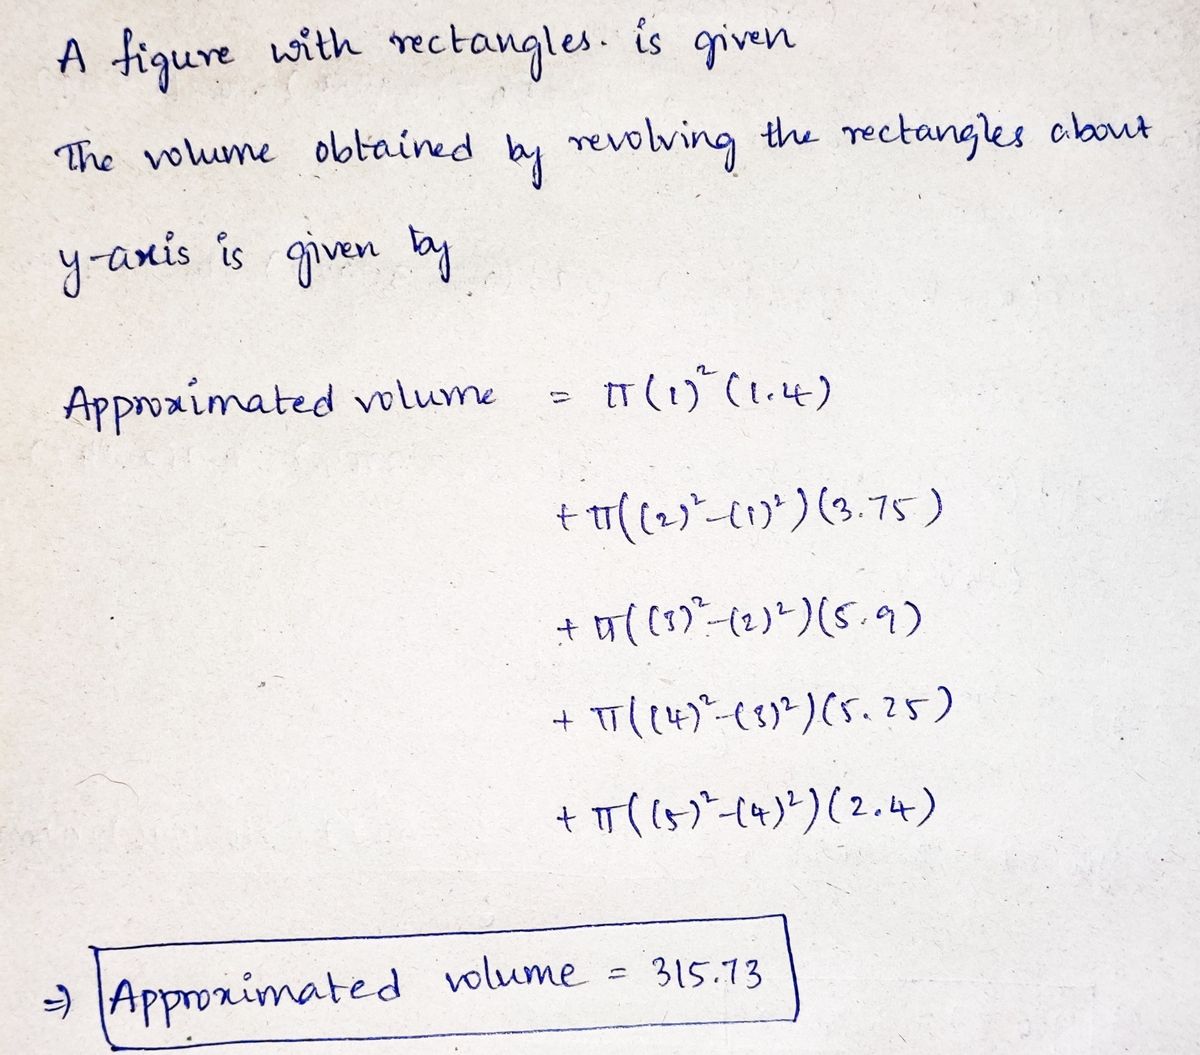 A figure with rectangles. is given
The volume obtained by revolving the rectangles about
y-axis is given by
Approximated volume = π(1)²(1.4)
+ π((2)²-(1)²)(3.75)
+ π((3)²-(2)²)(5.9)
+ π((4)²-(3)²)(5.25)
+ π((5)²-(4)²)(2.4)
⇒ Approximated volume = 315.73